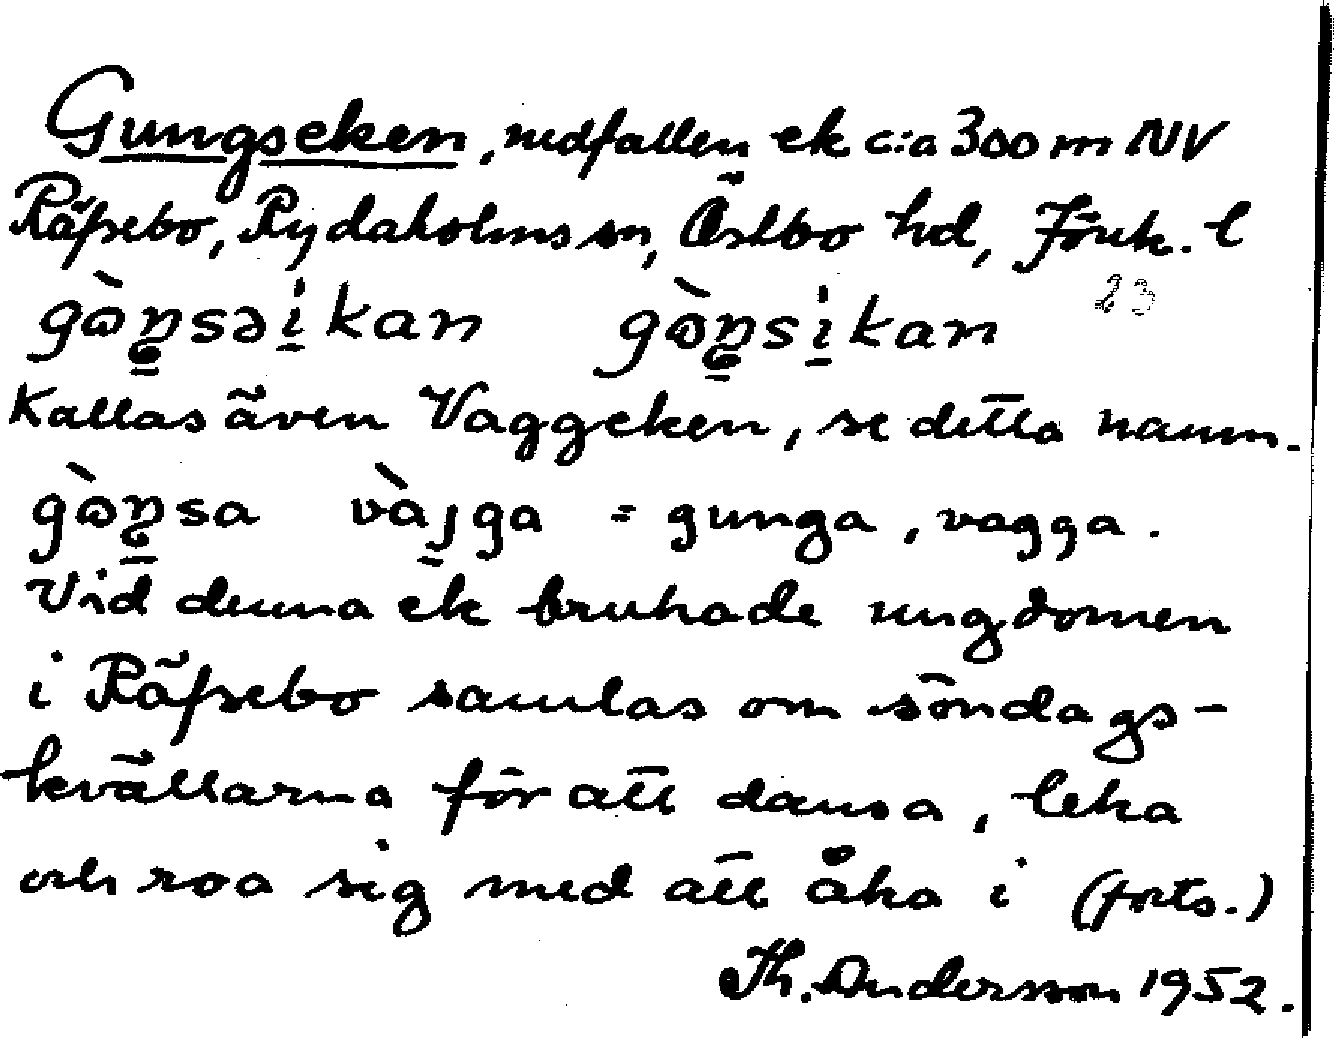 Gungseken, nedfallen ek c:a 300 m NV
Räfsebo, Rydaholms sn, Östbo hd, Jönk. l
23
Kallas även Vaggeken, se detta namn.
= gunga, vagga.
Vid denna ek brukade ungdomen
i Räfsebo samlas om söndags-
kvällarna för att dansa, leka
och roa sig med att åka i (forts.)
Th. Andersson 1952.